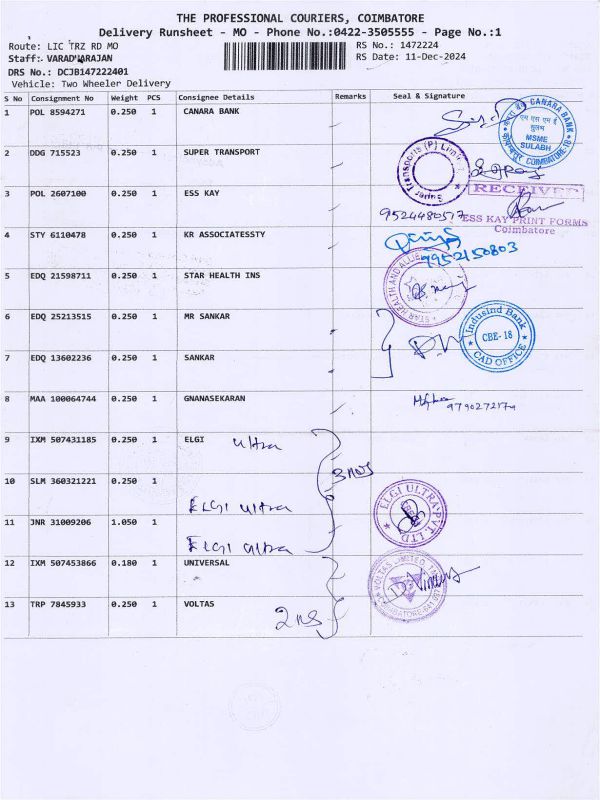 THE PROFESSIONAL COURIERS, COIMBATORE
Delivery Runsheet - MO - Phone No.:0422-3505555 - Page No.:1
Route: LIC TRZ RD MO
RS No.: 1472224
Staff: VARADHARAJAN
RS Date: 11-Dec-2024
DRS No.: DCJB147222401
Vehicle: Two Wheeler Delivery
S No Consignment No Weight PCS Consignee Details Remarks Seal & Signature
1 POL 8594271 0.250 1 CANARA BANK
CANARA BANK
MSME
SULABH
COIMBATORE-18
2 DDG 715523 0.250 1 SUPER TRANSPORT
Super Transports (P) Limited
3 POL 2607100 0.250 1 ESS KAY
RECEIVED
9524480517
ESS KAY PRINT FORMS
Coimbatore
4 STY 6110478 0.250 1 KR ASSOCIATESSTY
9952150803
5 EDQ 21598711 0.250 1 STAR HEALTH INS
STAR HEALTH AND ALLIED
6 EDQ 25213515 0.250 1 MR SANKAR
Indusind Bank
CBE-18
CAD OFFICE
7 EDQ 13602236 0.250 1 SANKAR
8 MAA 100064744 0.250 1 GNANASEKARAN
9 IXM 507431185 0.250 1 ELGI ultra
3 NOS
10 SLM 360321221 0.250 1
ELGI ultra
ELGI ULTRA PVT. LTD
11 JNR 31009206 1.050 1
ELGI ultra
12 IXM 507453866 0.180 1 UNIVERSAL
VOLTAS LIMITED
13 TRP 7845933 0.250 1 VOLTAS